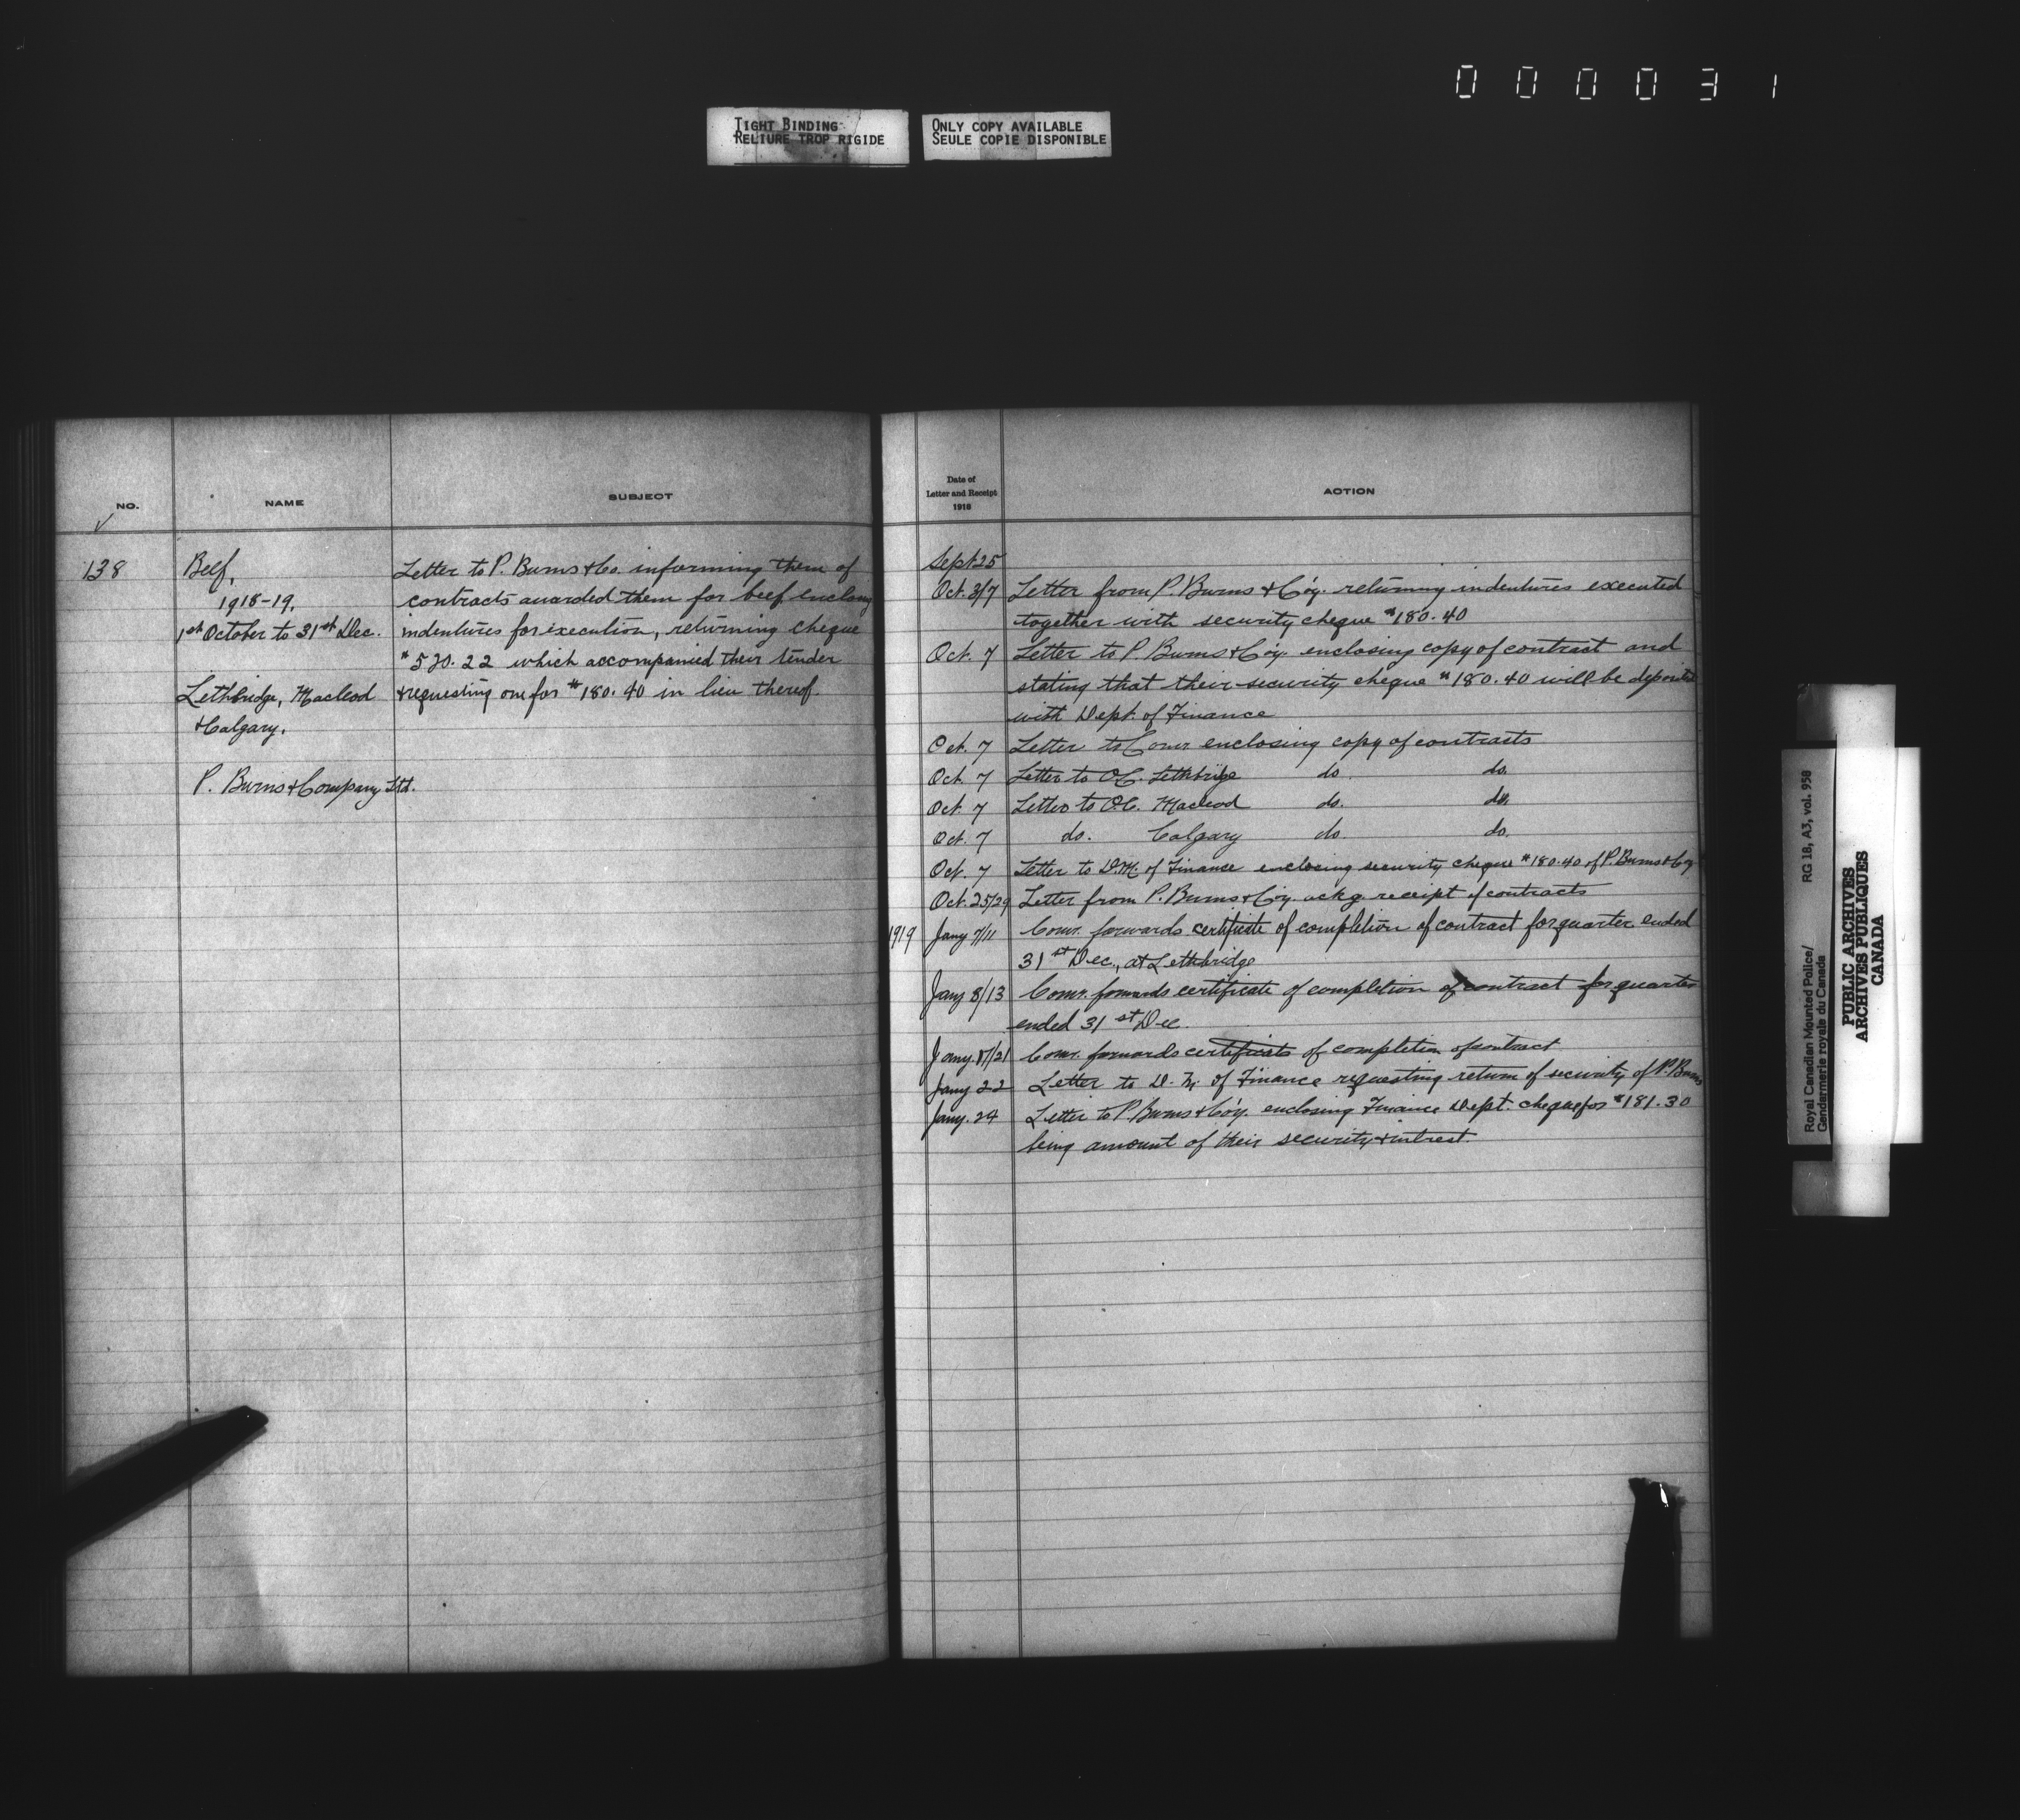 000031
TIGHT BINDING
RELIURE TROP RIGIDE
ONLY COPY AVAILABLE
SEULE COPIE DISPONIBLE
NO.
NAME
SUBJECT
138
Beef,
1918-19.
1st October to 31st Dec.
Lethbridge, Macleod
& Calgary.
P. Burns & Company Ltd.
Letter to P. Burns & Co. informing them of
contracts awarded them for beef enclosing
indentures for execution, returning cheque
$520.22 which accompanied their tender
& requesting one for $180.40 in lieu thereof
Date of
Letter and Receipt
1918
ACTION
Sept 25
Oct. 3/7 Letter from P. Burns & Co'y. returning indentures executed
together with security cheque $180.40
Oct. 7 Letter to P. Burns & Co'y. enclosing copy of contract and
stating that their security cheque $180.40 will be deposited
with Dept. of Finance
Oct. 7 Letter to Comr enclosing copy of contracts
Oct. 7 Letter to O.C. Lethbridge do. do.
Oct. 7 Letter to O.C. Macleod do. do.
Oct. 7 do. Calgary do. do.
Oct. 7 Letter to D.M. of Finance enclosing security cheque $180.40 of P. Burns & Coy
Oct. 25/29 Letter from P. Burns & Co'y. ackg. receipt of contracts
1919 Jany 7/11 Comr. forwards certificate of completion of contract for quarter ended
31st Dec., at Lethbridge
Jany 8/13 Comr. forwards certificate of completion of contract for quarter
ended 31st Dec.
Jany. 17/21 Comr. forwards certificate of completion of contract
Jany 22 Letter to D. M. of Finance requesting return of security of P. Burns
Jany. 24 Letter to P. Burns & Co'y. enclosing Finance Dept. cheque for $181.30
being amount of their security & intrest
Royal Canadian Mounted Police/ RG 18, A3, vol. 958
Gendarmerie royale du Canada
PUBLIC ARCHIVES
ARCHIVES PUBLIQUES
CANADA